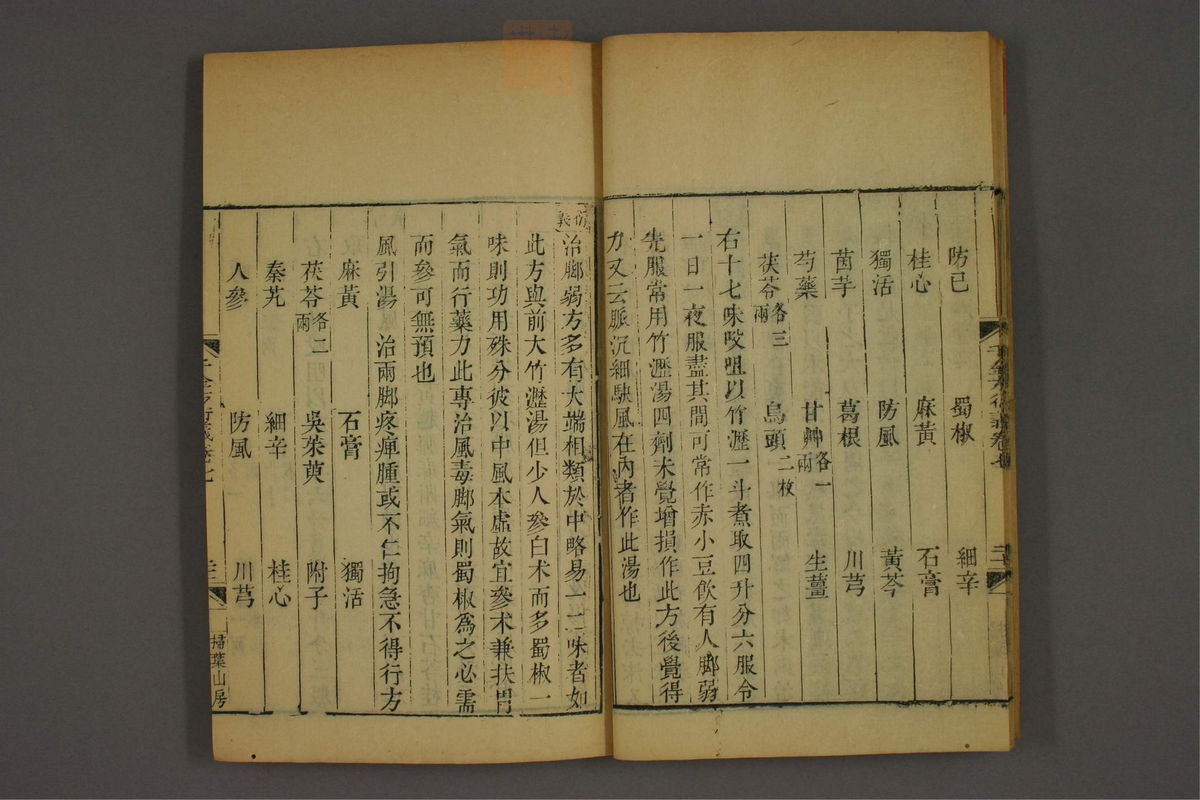 防已　蜀椒　細辛
桂心　麻黃　石膏
獨活　防風　黃芩
茵芋　葛根　川芎
芍藥　甘艸各一兩　生薑
茯苓各三兩　烏頭二枚
右十七味㕮咀以竹瀝一斗煮取四升分六服令
一日一夜服盡其間可常作赤小豆飲有人腳弱
先服常用竹瀝湯四劑未覺增損作此方後覺得
力又云脈沉細駃風在內者作此湯也
千金方衍義卷七
衍義
治腳弱方多有大端相類於中略易一二味者如
此方與前大竹瀝湯但少人參白朮而多蜀椒一
味則功用殊分彼以中風本虛故宜參朮兼扶胃
氣而行藥力此專治風毒腳氣則蜀椒為之必需
而參可無預也
風引湯　治兩腳疼痺腫或不仁拘急不得行方
麻黃　石膏　獨活
茯苓各二兩　吳茱萸　附子
秦艽　細辛　桂心
人參　防風　川芎
千金方衍義卷七
掃葉山房